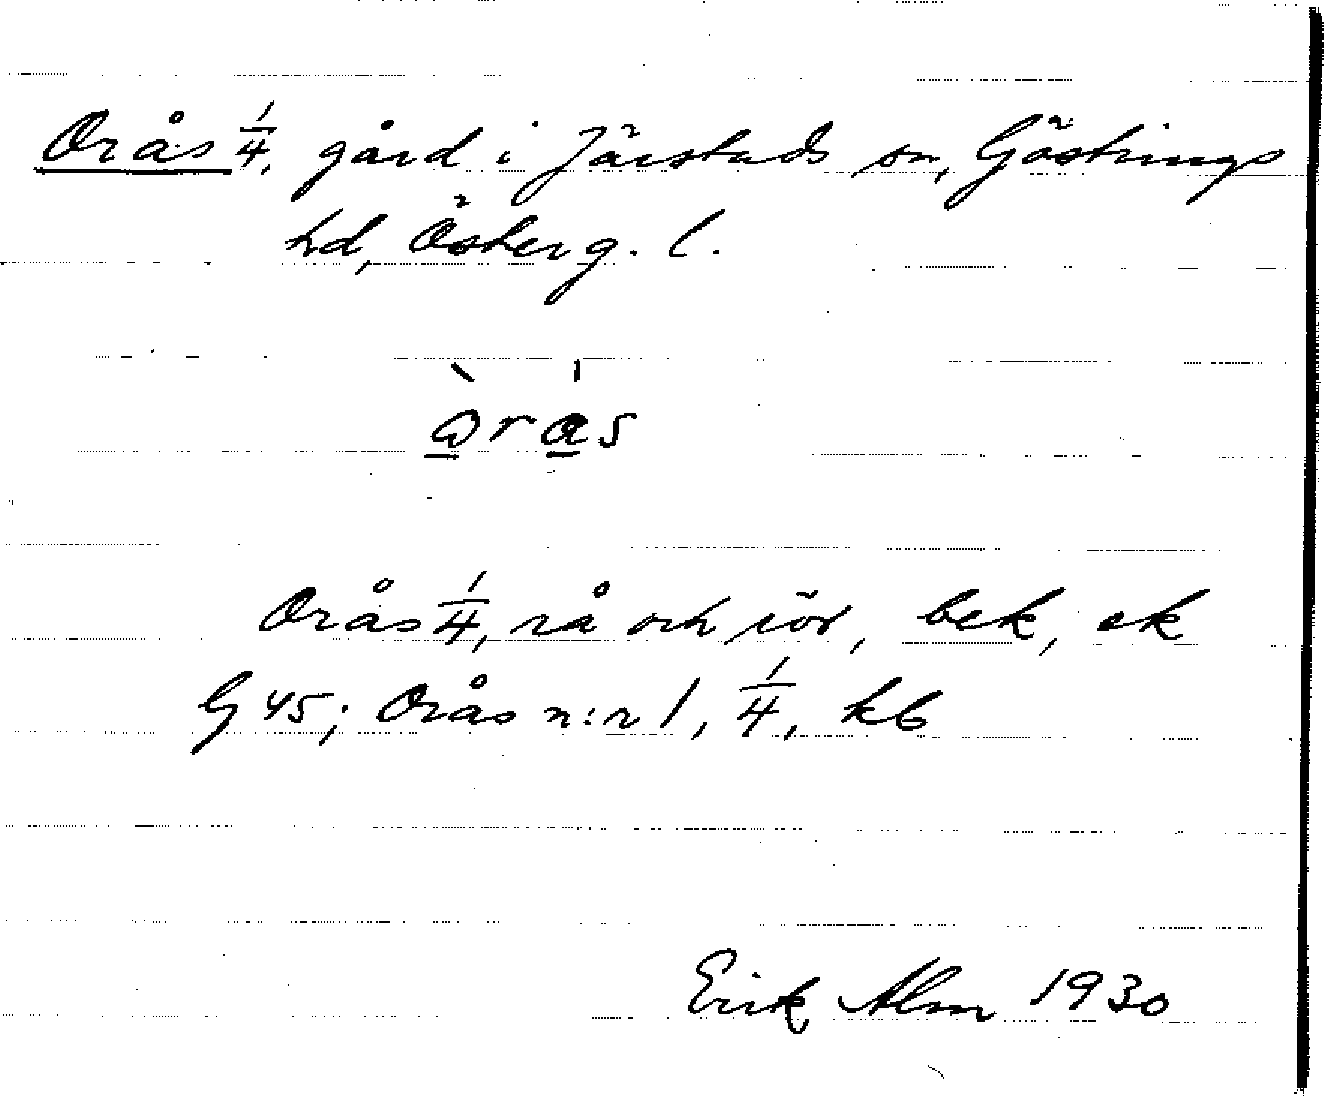 Orås 1/4, gård i Järstads sn, Göstrings
hd, Österg. l.
òrás
Orås 1/4, rå och rör, bek, ek
G 45; Orås n:r 1, 1/4, kb
Erik Alm 1930